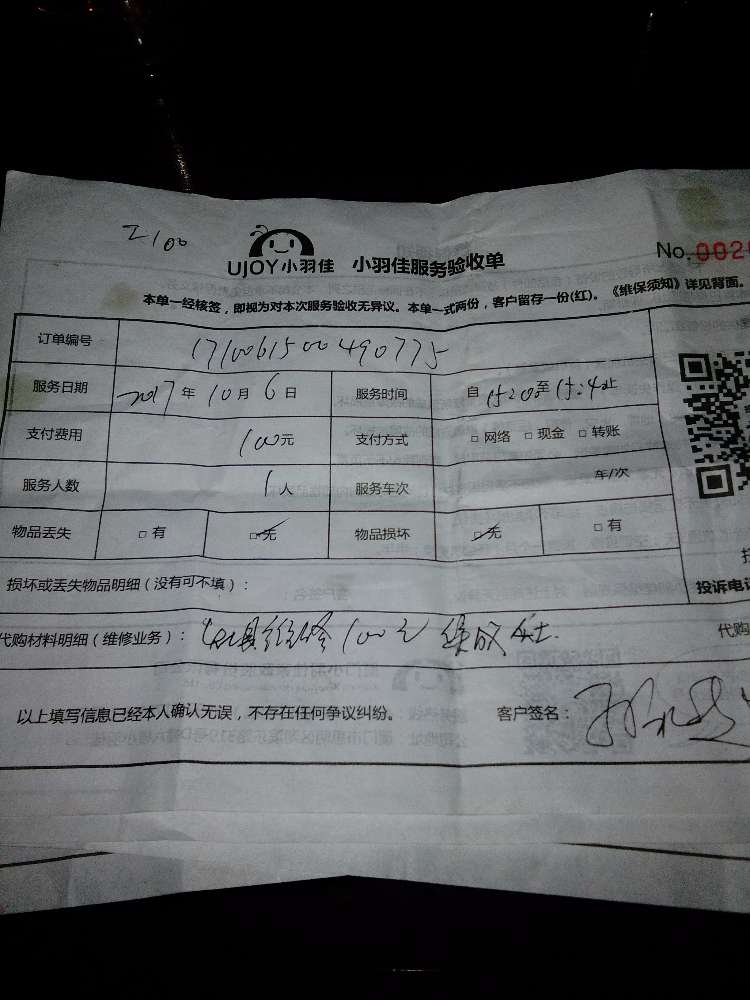 2100
UJOY小羽佳 小羽佳服务验收单 No.002
本单一经核签，即视为对本次服务验收无异议。本单一式两份，客户留存一份(红)。《维保须知》详见背面。
订单编号 1710061500490775
服务日期 2017年10月6日 服务时间 自15:200至15:4止
支付费用 100元 支付方式 □网络 □现金 □转账
服务人数 1人 服务车次 年/次
物品丢失 □有 □无 物品损坏 □无 □有
投诉电话
损坏或丢失物品明细（没有可不填）：
代购材料明细（维修业务）： 维修100元 代购
以上填写信息已经本人确认无误，不存在任何争议纠纷。 客户签名：